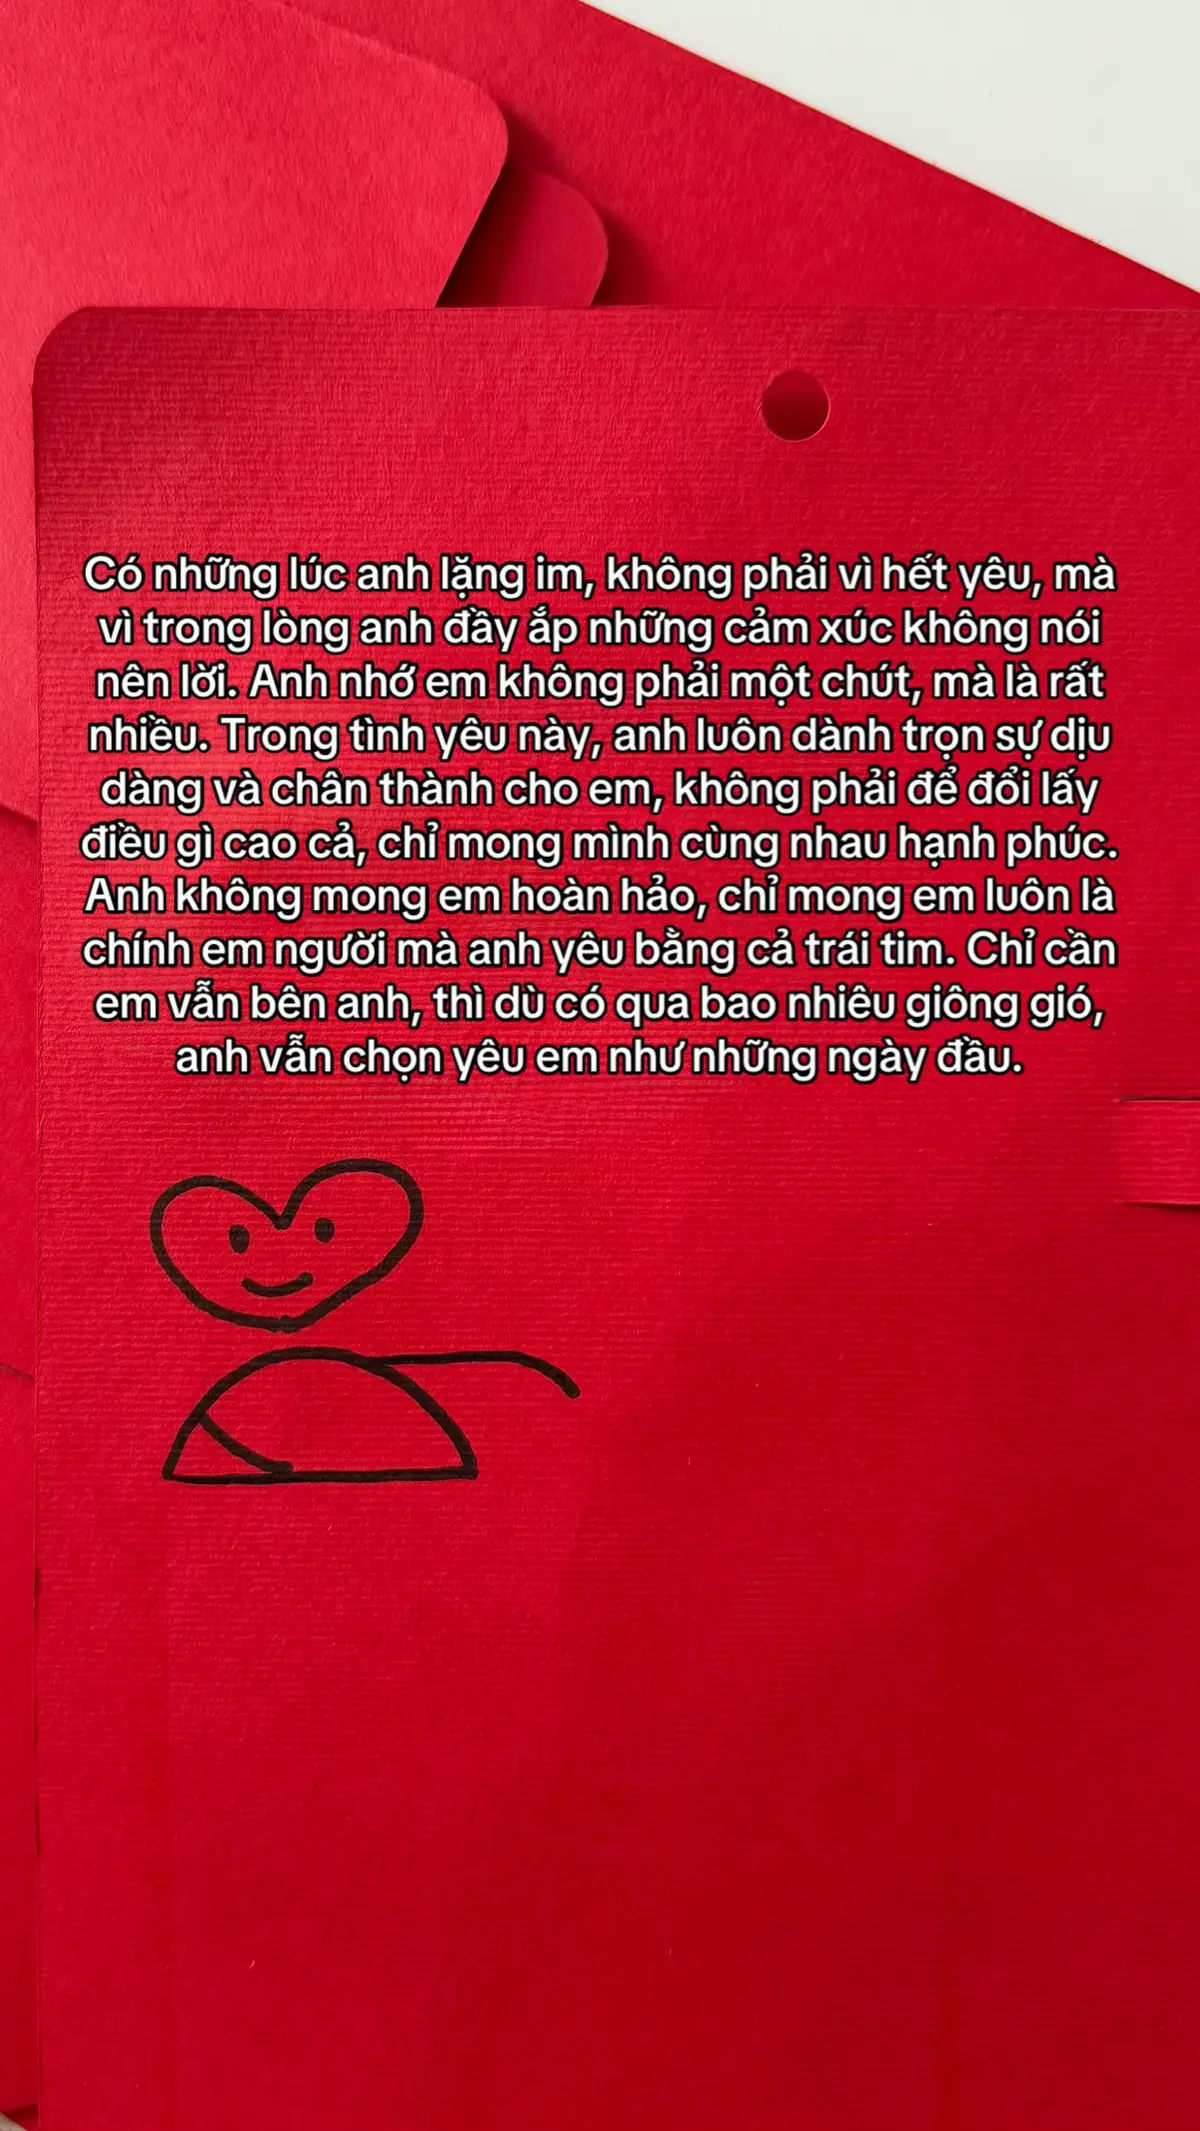 Có những lúc anh lặng im, không phải vì hết yêu, mà
vì trong lòng anh đầy ắp những cảm xúc không nói
nên lời. Anh nhớ em không phải một chút, mà là rất
nhiều. Trong tình yêu này, anh luôn dành trọn sự dịu
dàng và chân thành cho em, không phải để đổi lấy
điều gì cao cả, chỉ mong mình cùng nhau hạnh phúc.
Anh không mong em hoàn hảo, chỉ mong em luôn là
chính em người mà anh yêu bằng cả trái tim. Chỉ cần
em vẫn bên anh, thì dù có qua bao nhiêu giông gió,
anh vẫn chọn yêu em như những ngày đầu.